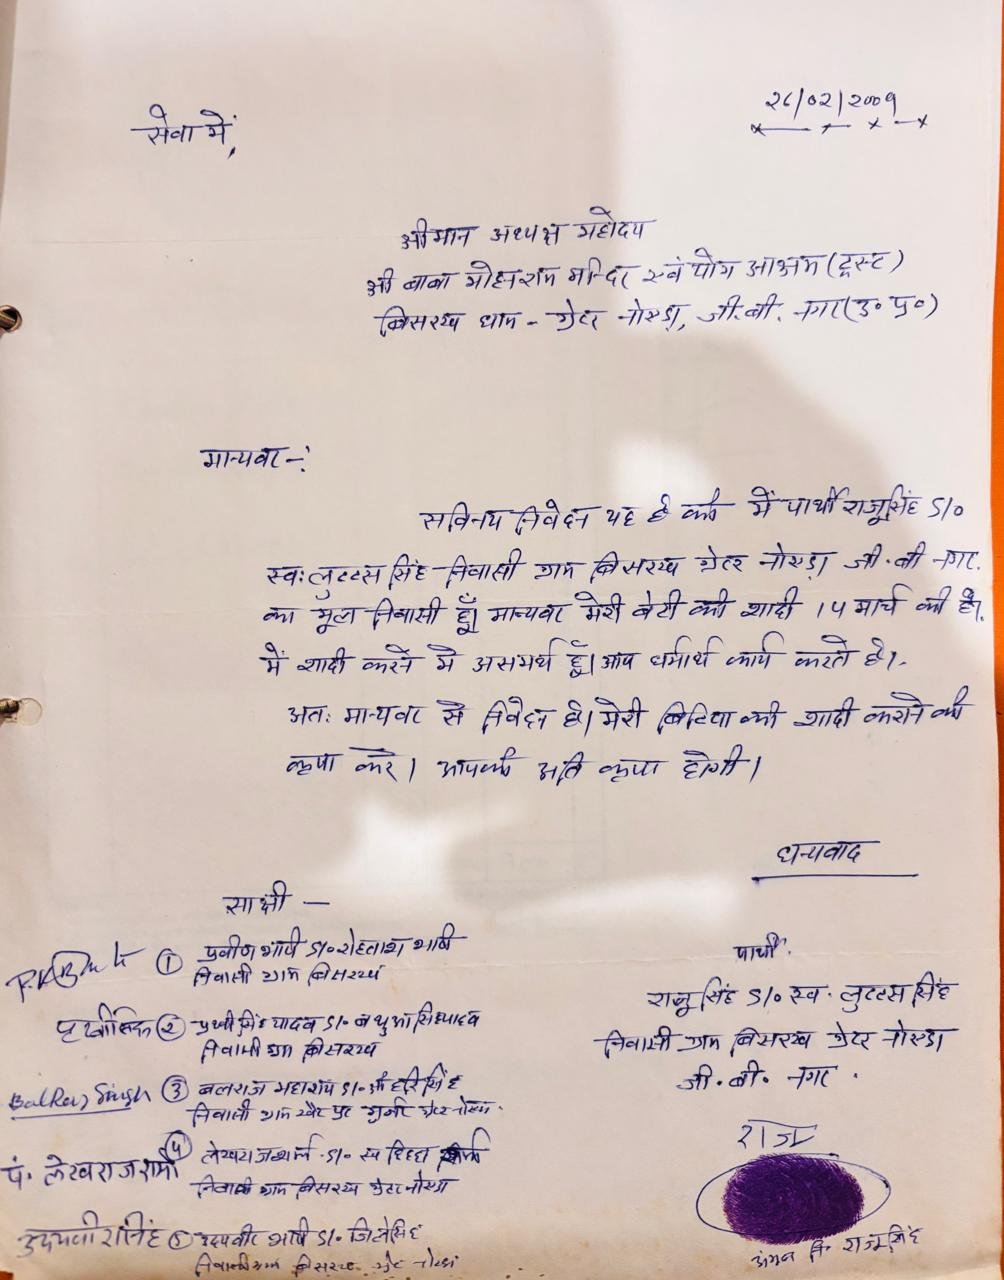 २८/०२/२००९
सेवा में,
श्रीमान अध्यक्ष महोदय
श्री बाबा मोहनराम मन्दिर एवं योग आश्रम (ट्रस्ट)
बिसरख धाम - ग्रेटर नोएडा, जी.बी. नगर (उ० प्र०)
मान्यवर -:
सविनय निवेदन यह है की में प्रार्थी राजू सिंह S/०
स्व: लुटटस सिंह निवासी ग्राम बिसरख ग्रेटर नोएडा जी.बी नगर.
का मूल निवासी हूँ। मान्यवर मेरी बेटी की शादी १५ मार्च की है।
में शादी करने मे असमर्थ हूँ। आप धर्मार्थ कार्य करते है।
अत: मान्यवर से निवेदन है। मेरी बिटिया की शादी कराने की
कृपा करे। आपकी अति कृपा होगी।
धन्यवाद
साक्षी -
① प्रवीण भाटी S/० रोहताश भाटी
निवासी ग्राम बिसरख
पृथ्वीसिंह ② पृथ्वी सिंह यादव S/०
निवासी ग्राम बिसरख
Balraj Singh ③ बलराज S/० श्री हरि सिंह
निवासी ग्राम खैर पुर गुर्जर ग्रेटर नोएडा.
पं. लेखराज शर्मा ④ लेखराज शर्मा S/० स्व
निवासी ग्राम बिसरख ग्रेटर नोएडा
उदयवीर सिंह ⑤ उदयवीर भाटी S/० जिले सिंह
निवासी ग्राम बिसरख ग्रेटर नोएडा
प्रार्थी.
राजू सिंह S/० स्व. लुटटस सिंह
निवासी ग्राम बिसरख ग्रेटर नोएडा
जी.बी. नगर.
राजू
राजू सिंह